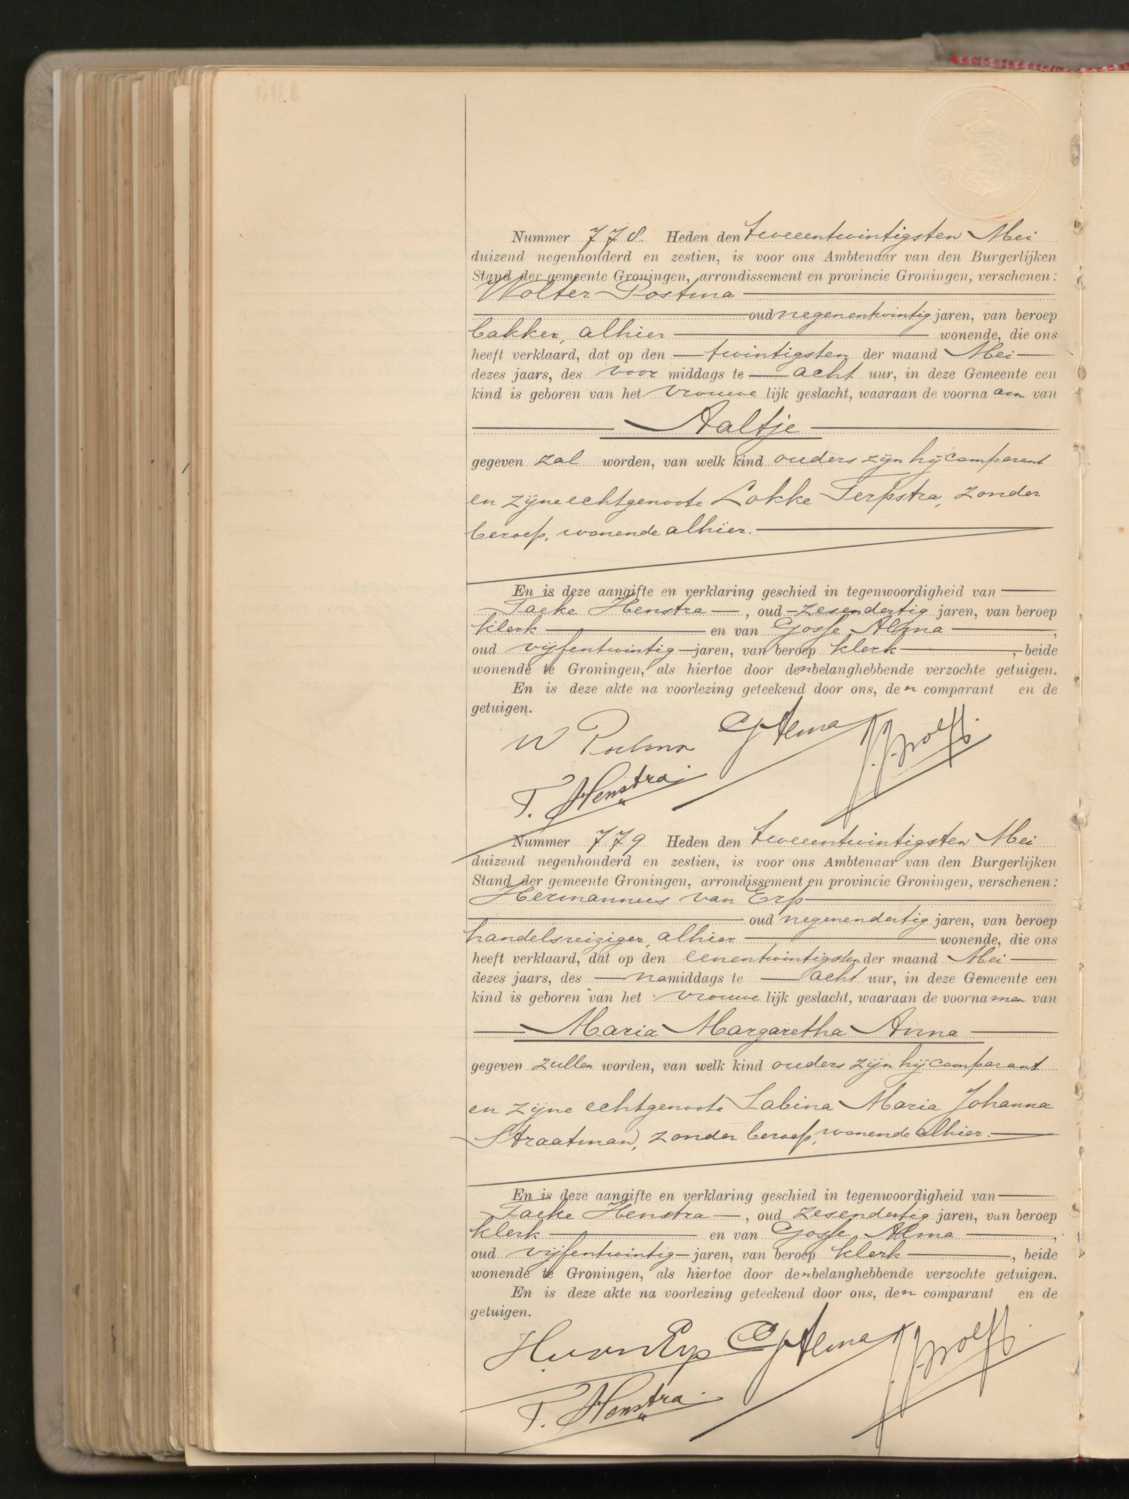 Nummer 778. Heden den tweeentwintigsten Mei
duizend negenhonderd en zestien, is voor ons Ambtenaar van den Burgerlijken
Stand der gemeente Groningen, arrondissement en provincie Groningen, verschenen:
Wolter Postma
oud negenentwintig jaren, van beroep
bakker, alhier wonende, die ons
heeft verklaard, dat op den twintigsten der maand Mei
dezes jaars, des voor middags te acht uur, in deze Gemeente een
kind is geboren van het vrouwe lijk geslacht, waaraan de voorna am van
Aaltje
gegeven zal worden, van welk kind ouders zijn hij comparant
en zijne echtgenoote Lokke Terpstra, zonder
beroep, wonende alhier.
En is deze aangifte en verklaring geschied in tegenwoordigheid van
Taeke Henstra, oud zesendertig jaren, van beroep
klerk en van Gosse Alma,
oud vijfentwintig jaren, van beroep klerk, beide
wonende te Groningen, als hiertoe door den belanghebbende verzochte getuigen.
En is deze akte na voorlezing geteekend door ons, den comparant en de
getuigen.
W Postma G Alma
T. Henstra.
Nummer 779 Heden den tweeentwintigsten Mei
duizend negenhonderd en zestien, is voor ons Ambtenaar van den Burgerlijken
Stand der gemeente Groningen, arrondissement en provincie Groningen, verschenen:
Hermannus van Erp
oud negenendertig jaren, van beroep
handelsreiziger, alhier wonende, die ons
heeft verklaard, dat op den eenentwintigsten der maand Mei
dezes jaars, des namiddags te acht uur, in deze Gemeente een
kind is geboren van het vrouwe lijk geslacht, waaraan de voorna men van
Maria Margaretha Anna
gegeven zullen worden, van welk kind ouders zijn hij comparant
en zijne echtgenoote Sabina Maria Johanna
Straatman, zonder beroep, wonende alhier.
En is deze aangifte en verklaring geschied in tegenwoordigheid van
Taeke Henstra, oud zesendertig jaren, van beroep
klerk en van Gosse Alma,
oud vijfentwintig jaren, van beroep klerk, beide
wonende te Groningen, als hiertoe door den belanghebbende verzochte getuigen.
En is deze akte na voorlezing geteekend door ons, den comparant en de
getuigen.
H. van Erp G Alma
T. Henstra.